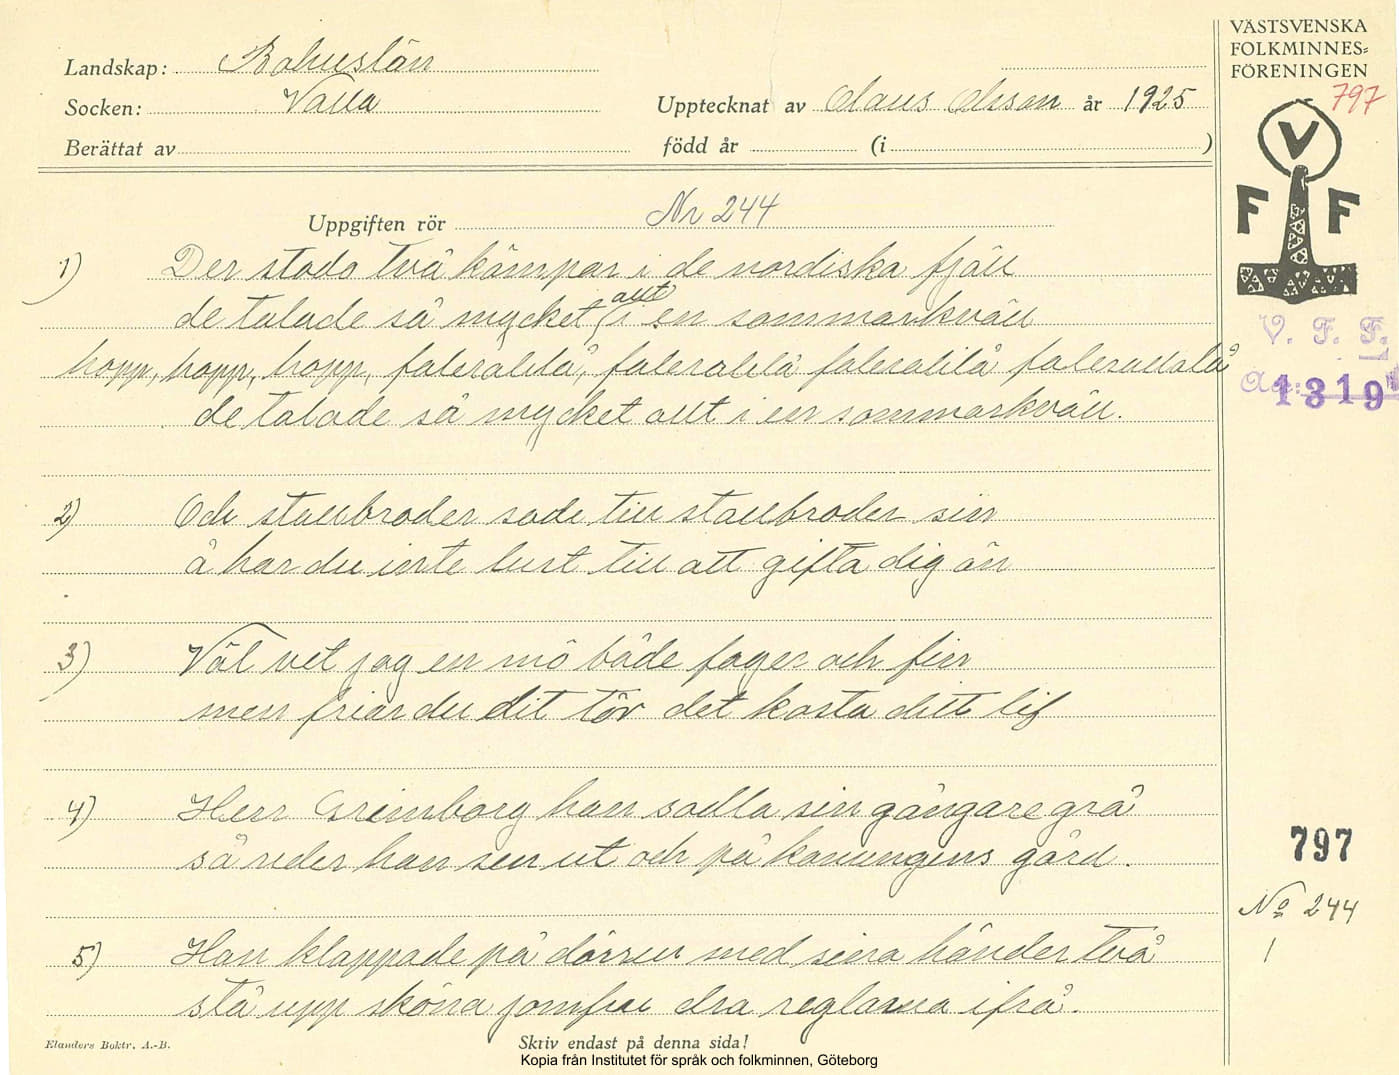 VÄSTSVENSKA
FOLKMINNES=
FÖRENINGEN
797
Landskap: Bohuslän
Socken: Valla
Upptecknat av Claus Olsson år 1925
Berättat av
född år (i )
V
F F
Uppgiften rör Nr 244
1) Der stodo två kämpar i de nordiska fjäll
de talade så mycket allt i en sommarkväll
hopp, hopp, hopp, faleralilå, faleralilå faleralilå faleralialå
de talade så mycket allt i en sommarkväll.
V. F. F.
1319
2) Och stallbroder sade till stallbroder sin
å har du inte lust till att gifta dig än
3) Väl vet jag en mö både fager och fin
men friar du dit tör det kosta ditt lif
4) Herr Grimborg han sadla sin gångare grå
så rider han sen ut och på konungens gård.
797
No 244
1
5) Han klappade på dörren med sina händer två
stå upp sköna jomfru dra reglarna ifrå.
Elanders Boktr. A.-B.
Skriv endast på denna sida!
Kopia från Institutet för språk och folkminnen, Göteborg